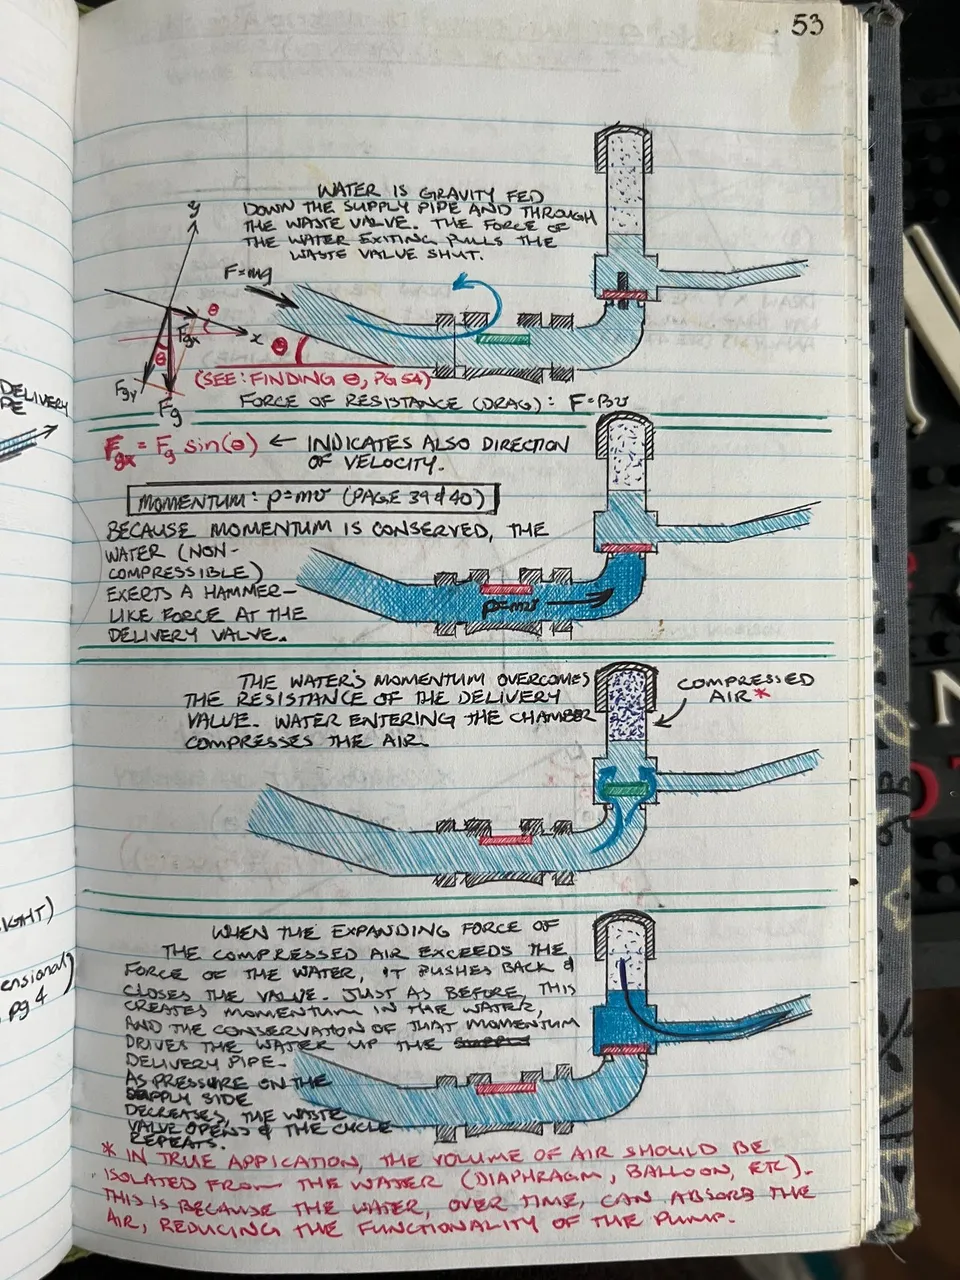 53
WATER IS GRAVITY FED
DOWN THE SUPPLY PIPE AND THROUGH
THE WASTE VALVE. THE FORCE OF
THE WATER EXITING PULLS THE
WASTE VALVE SHUT.
y
F=mg
θ
Fgx
x
θ
θ
Fgy
Fg
(SEE: FINDING θ, PG 54)
FORCE OF RESISTANCE (DRAG): F=Bv
Fgx = Fg sin(θ) ← INDICATES ALSO DIRECTION
OF VELOCITY.
MOMENTUM: p=mv (PAGE 39 & 40)
BECAUSE MOMENTUM IS CONSERVED, THE
WATER (NON-
COMPRESSIBLE)
EXERTS A HAMMER-
LIKE FORCE AT THE
DELIVERY VALVE.
p=mv
THE WATER'S MOMENTUM OVERCOMES
THE RESISTANCE OF THE DELIVERY
VALVE. WATER ENTERING THE CHAMBER
COMPRESSES THE AIR.
COMPRESSED
AIR*
WHEN THE EXPANDING FORCE OF
THE COMPRESSED AIR EXCEEDS THE
FORCE OF THE WATER, IT PUSHES BACK &
CLOSES THE VALVE. JUST AS BEFORE, THIS
CREATES MOMENTUM IN THE WATER,
AND THE CONSERVATION OF THAT MOMENTUM
DRIVES THE WATER UP THE SUPPLY
DELIVERY PIPE.
AS PRESSURE ON THE
SUPPLY SIDE
DECREASES, THE WASTE
VALVE OPENS & THE CYCLE
REPEATS.
* IN TRUE APPLICATION, THE VOLUME OF AIR SHOULD BE
ISOLATED FROM THE WATER (DIAPHRAGM, BALLOON, ETC).
THIS IS BECAUSE THE WATER, OVER TIME, CAN ABSORB THE
AIR, REDUCING THE FUNCTIONALITY OF THE PUMP.
DELIVERY
PE
IGHT)
ensional)
pg 4